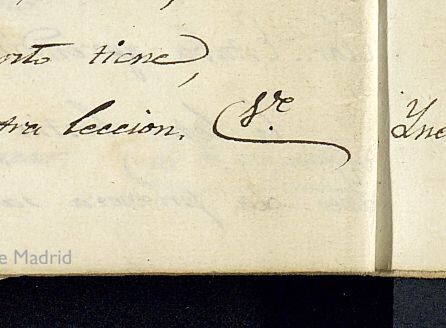 orto tiene,
tra leccion. Ve. Yne
e Madrid